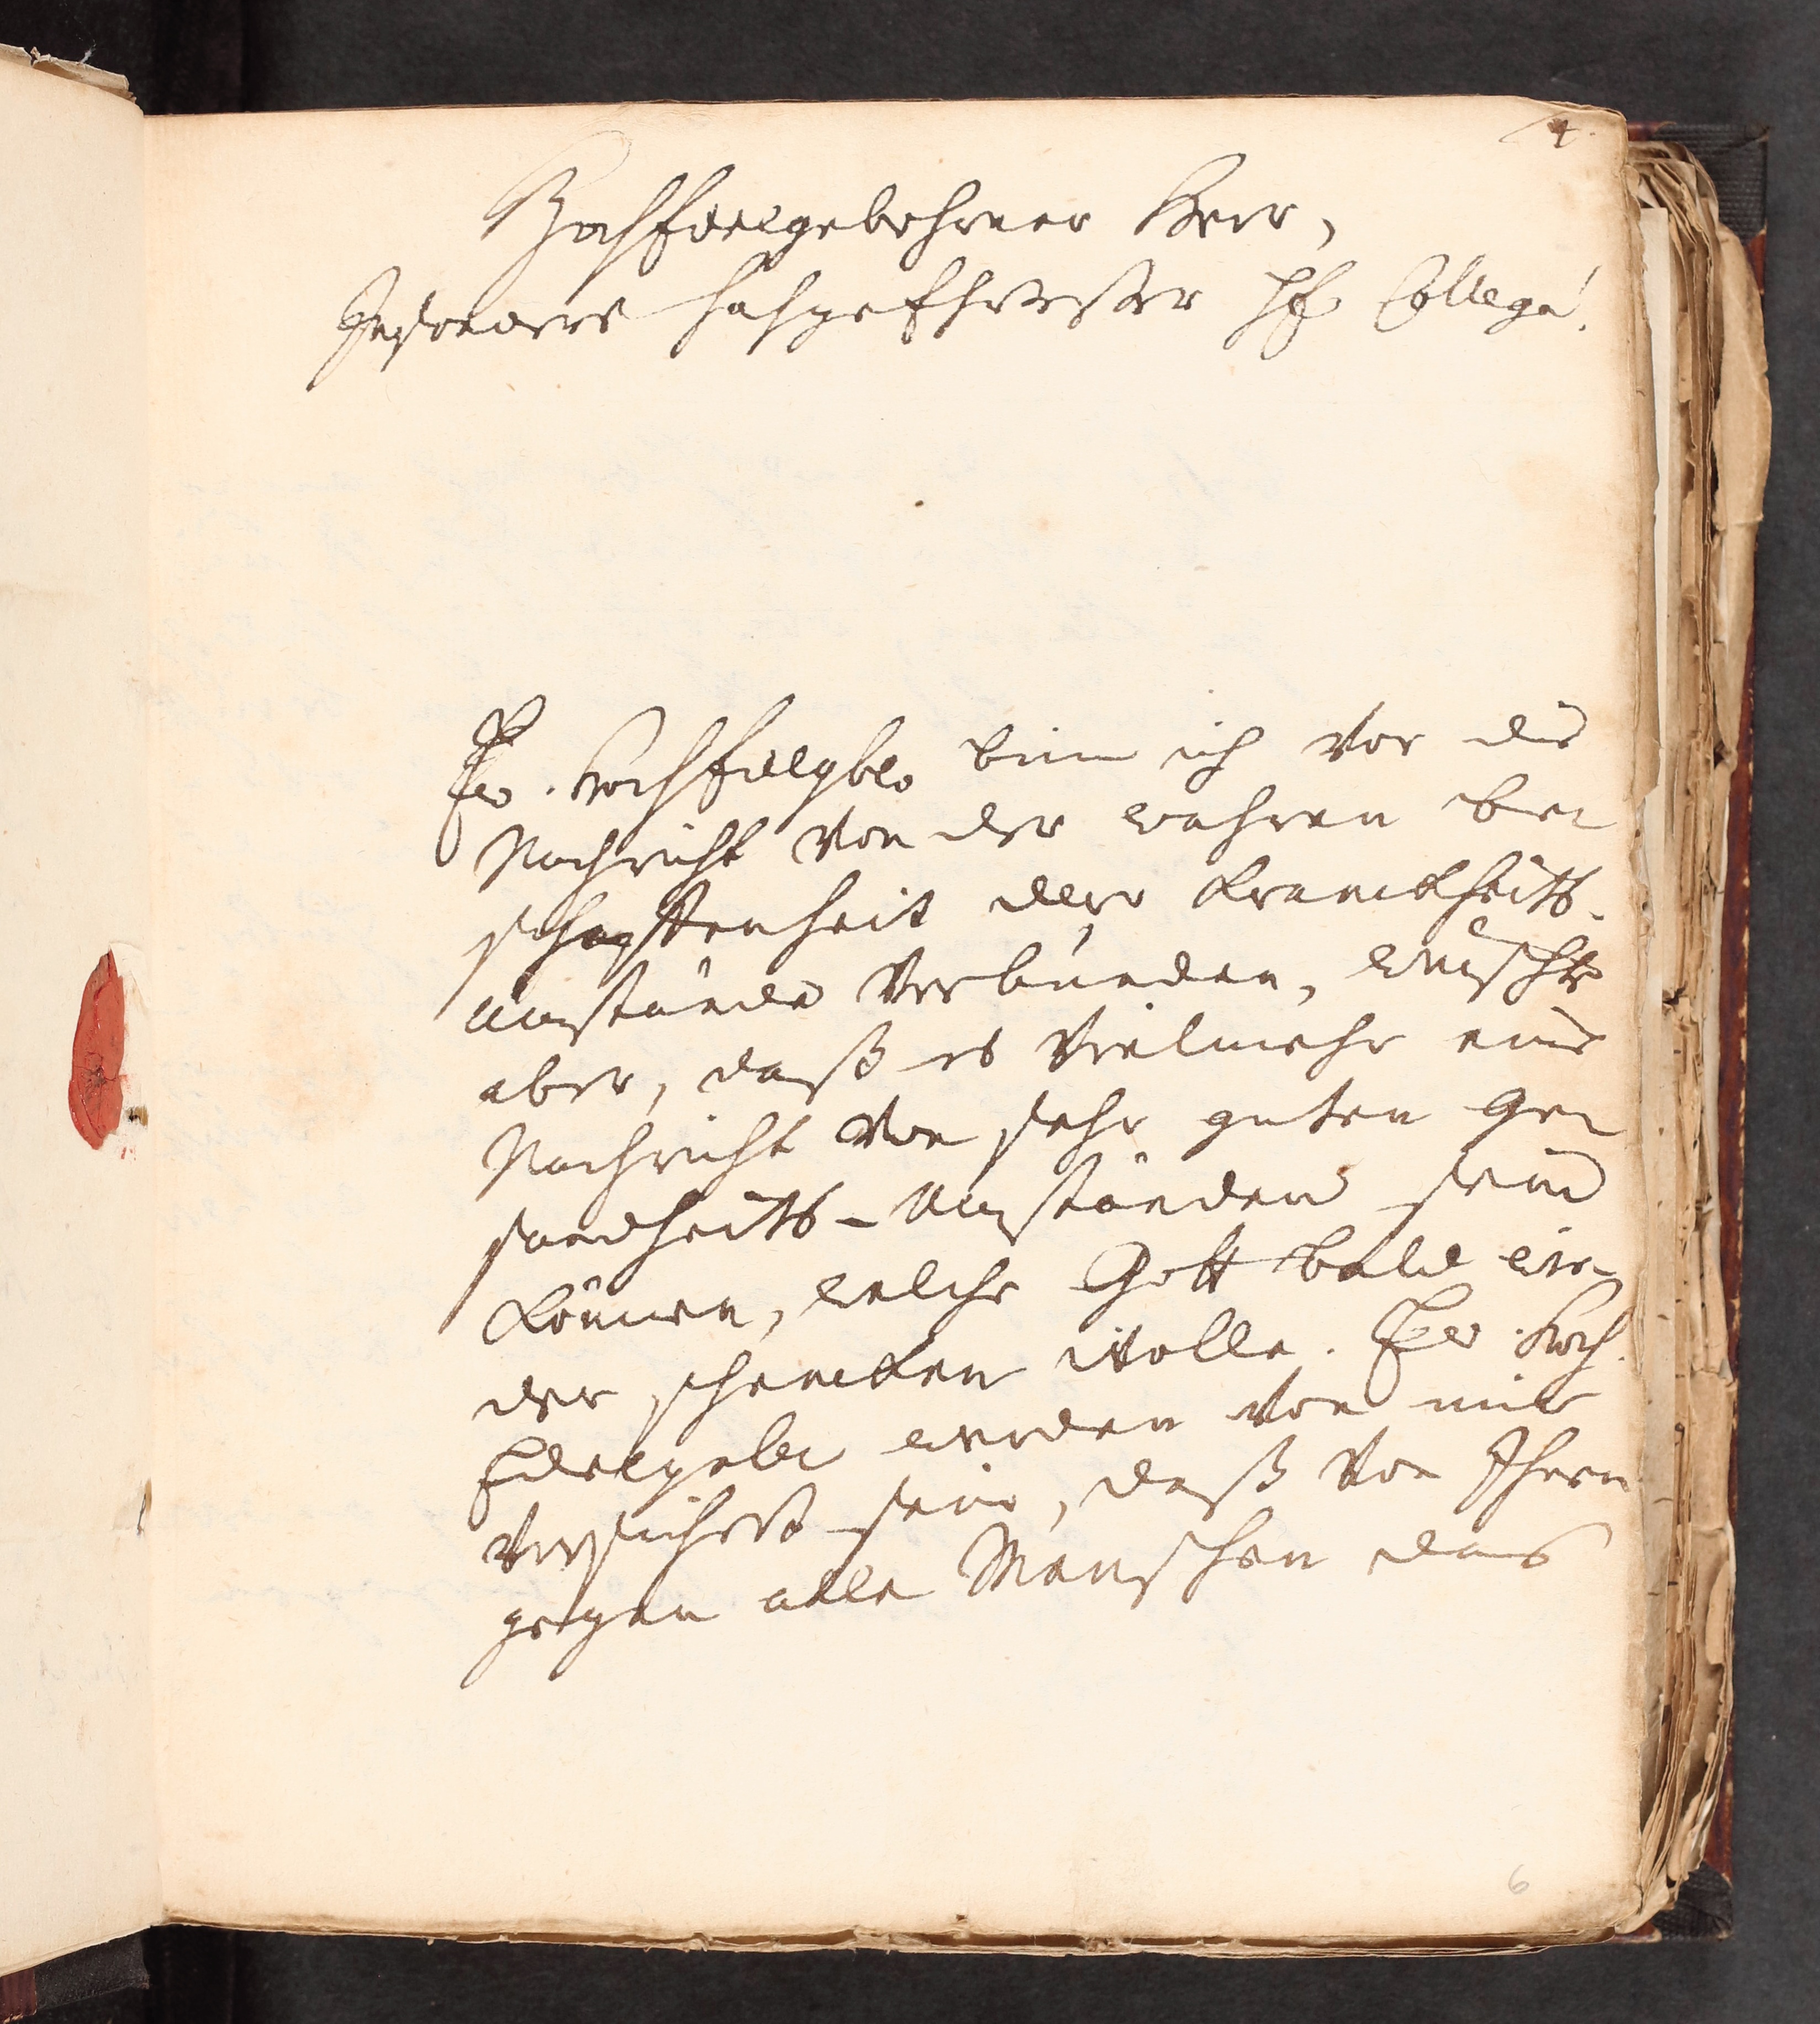 4.
HochEdelgebohrner Herr,
Insonders hochgeEhrtester HE. Collega!
Ew. HochEdelgb. binn ich vor die
Nachricht von der wahren be¬
schaffenheit derer Kranckheits-
umstände verbunden, wüschte
aber, daß es vielmehr eine
Nachricht von sehr guten Ge¬
sundheits-Umständen sein
können, welche Gott bald wie¬
der schencken wolle. Ew. Hoch.
Edelgebl werden von mir
versichert sein, daß von Ihnen
gegen alle Menschen das
6